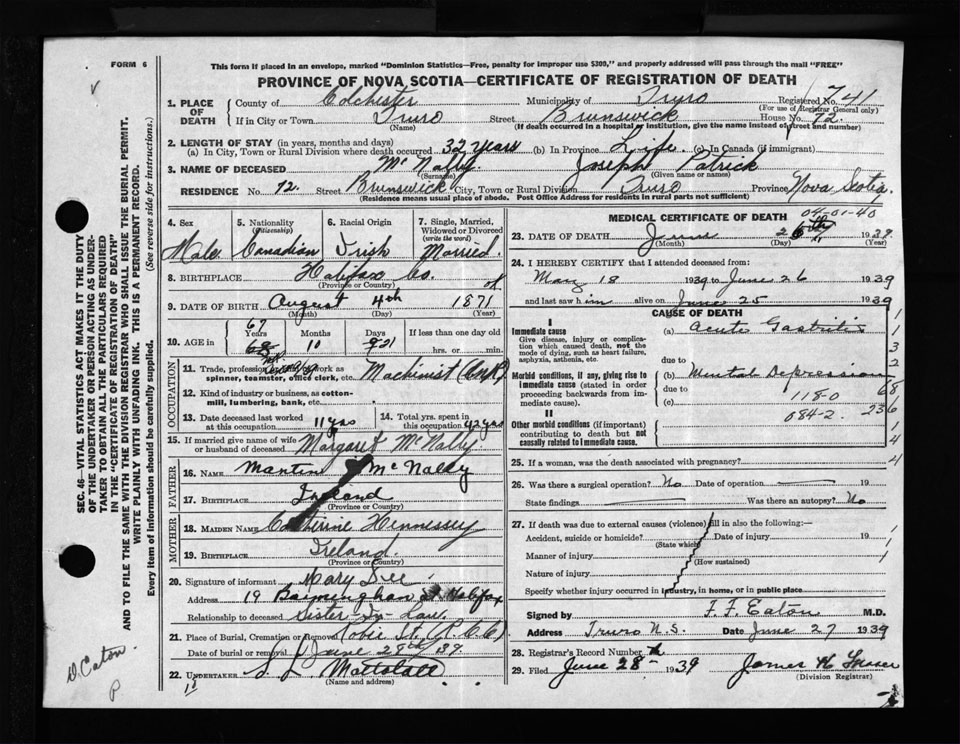 FORM 6
This form if placed in an envelope, marked "Dominion Statistics—Free, penalty for improper use $300," and properly addressed will pass through the mail "FREE"
PROVINCE OF NOVA SCOTIA—CERTIFICATE OF REGISTRATION OF DEATH
1. PLACE OF DEATH County of Colchester Municipality of Truro Registered No. 741
(For use of Registrar General only)
If in City or Town Truro Street Brunswick House No. 72.
(Name) (If death occurred in a hospital or institution, give the name instead of street and number)
2. LENGTH OF STAY (in years, months and days)
(a) In City, Town or Rural Division where death occurred 32 years (b) In Province Life. (c) In Canada (if immigrant)
3. NAME OF DECEASED McNally. Joseph Patrick
(Surname) (Given name or names)
RESIDENCE No. 72. Street Brunswick City, Town or Rural Division Truro Province Nova Scotia.
(Residence means usual place of abode. Post Office Address for residents in rural parts not sufficient)
4. Sex Male.
5. Nationality (Citizenship) Canadian
6. Racial Origin Irish
7. Single, Married, Widowed or Divorced (write the word) Married.
8. BIRTHPLACE Halifax Co.
(Province or Country)
9. DATE OF BIRTH August 4th 1871
(Month) (Day) (Year)
10. AGE in 67 Years 10 Months 21 Days If less than one day old hrs. or min.
OCCUPATION
11. Trade, profession or kind of work as spinner, teamster, office clerk, etc. Machinist (CNR)
12. Kind of industry or business, as cotton-mill, lumbering, bank, etc.
13. Date deceased last worked at this occupation 11 yrs
14. Total yrs. spent in this occupation 42 yrs
15. If married give name of wife or husband of deceased Margaret McNally
FATHER
16. NAME Martin McNally
17. BIRTHPLACE Ireland
(Province or Country)
MOTHER
18. MAIDEN NAME Catherine Hennessey
19. BIRTHPLACE Ireland.
(Province or Country)
20. Signature of informant Mary Dee
Address 19 St. Halifax
Relationship to deceased Sister In Law.
21. Place of Burial, Cremation or Removal Robie St. (R.C.C)
Date of burial or removal June 28th 39.
22. UNDERTAKER S. L Mattatall
(Name and address)
MEDICAL CERTIFICATE OF DEATH
04-01-40
23. DATE OF DEATH June 26th 1939.
(Month) (Day) (Year)
24. I HEREBY CERTIFY that I attended deceased from:
May 18 1939 to June 26 1939
and last saw him alive on June 25 1939
CAUSE OF DEATH
I
Immediate cause (a) Acute Gastritis
Give disease, injury or complication which caused death, not the mode of dying, such as heart failure, asphyxia, asthenia, etc.
due to
Morbid conditions, if any, giving rise to immediate cause (stated in order proceeding backwards from immediate cause).
(b) Mental Depression
due to
(c) 118-0
084-2. 236
II
Other morbid conditions (if important) contributing to death but not causally related to immediate cause.
25. If a woman, was the death associated with pregnancy?
26. Was there a surgical operation? No Date of operation
State findings Was there an autopsy? No
27. If death was due to external causes (violence) fill in also the following:—
Accident, suicide or homicide? Date of injury 19
(State which)
Manner of injury
(How sustained)
Nature of injury
Specify whether injury occurred in industry, in home, or in public place
Signed by F. F. Eaton M.D.
Address Truro N.S. Date June 27 1939
28. Registrar's Record Number
29. Filed June 28- 1939 James H
(Division Registrar)
SEC. 46—VITAL STATISTICS ACT MAKES IT THE DUTY OF THE UNDERTAKER OR PERSON ACTING AS UNDERTAKER TO OBTAIN ALL THE PARTICULARS REQUIRED IN THE "CERTIFICATE OF REGISTRATION OF DEATH" AND TO FILE THE SAME WITH THE DIVISION REGISTRAR WHO SHALL ISSUE THE BURIAL PERMIT.
WRITE PLAINLY WITH UNFADING INK. THIS IS A PERMANENT RECORD.
Every item of information should be carefully supplied. (See reverse side for instructions.)
D. Eaton.
P